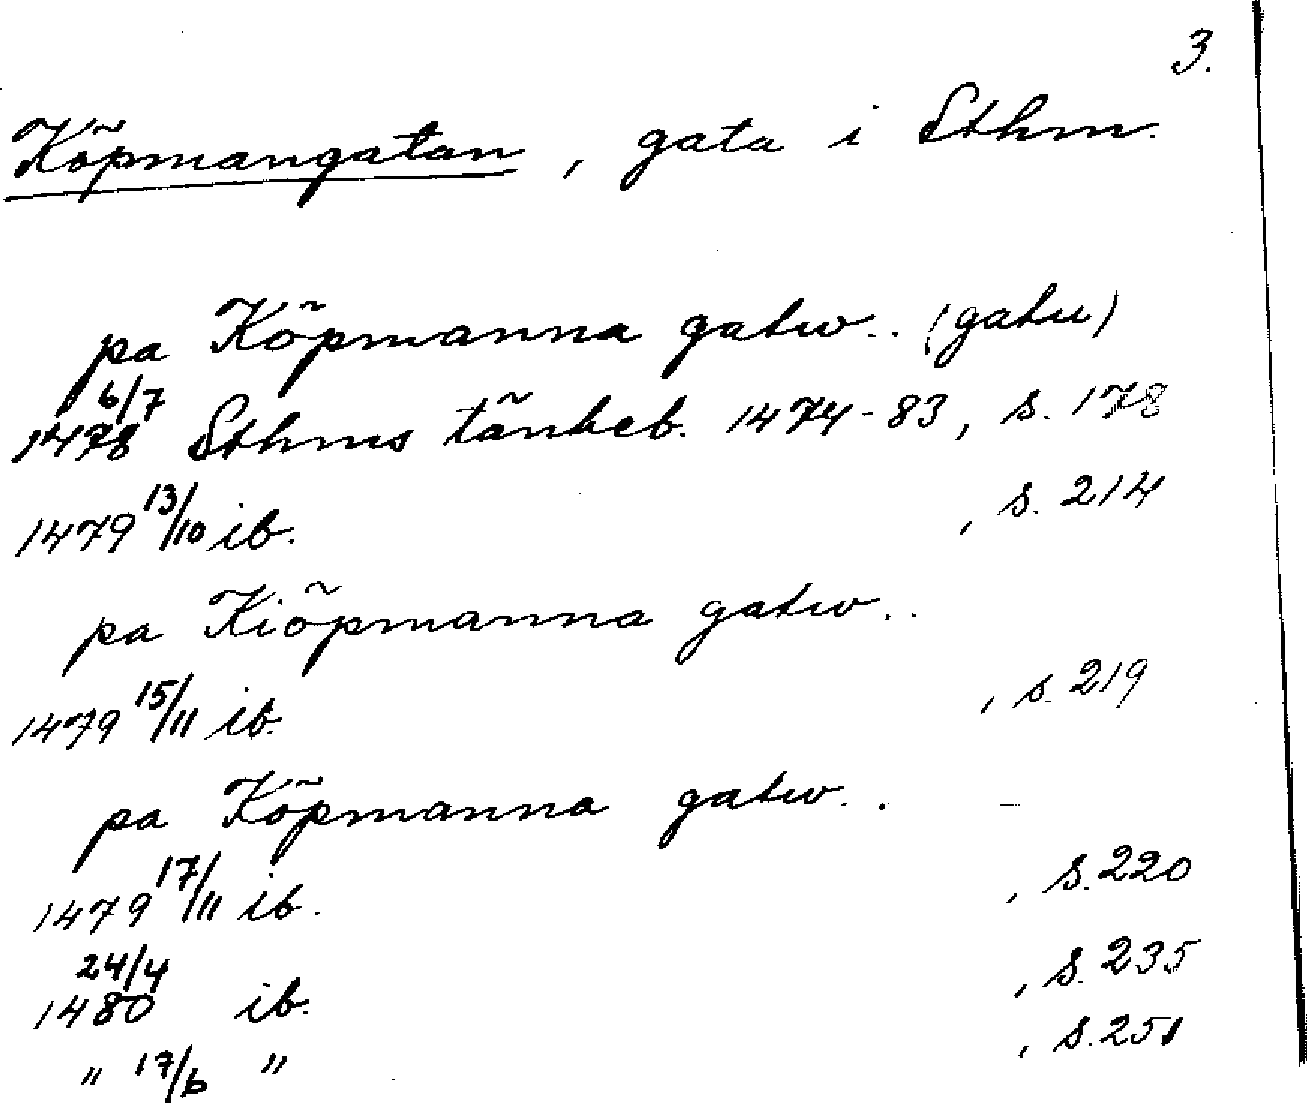 3.
Köpmangatan, gata i Sthm.
pa Köpmanna gatw.. (gatu)
6/7
1478 Sthms tänkeb. 1474-83, s. 178
1479 13/10 ib. , s. 214
pa Kiöpmanna gatw..
1479 15/11 ib. , s. 219
pa Köpmanna gatw..
1479 17/11 ib. , s. 220
24/4
1480 ib. , s. 235
" 17/6 " , s. 251